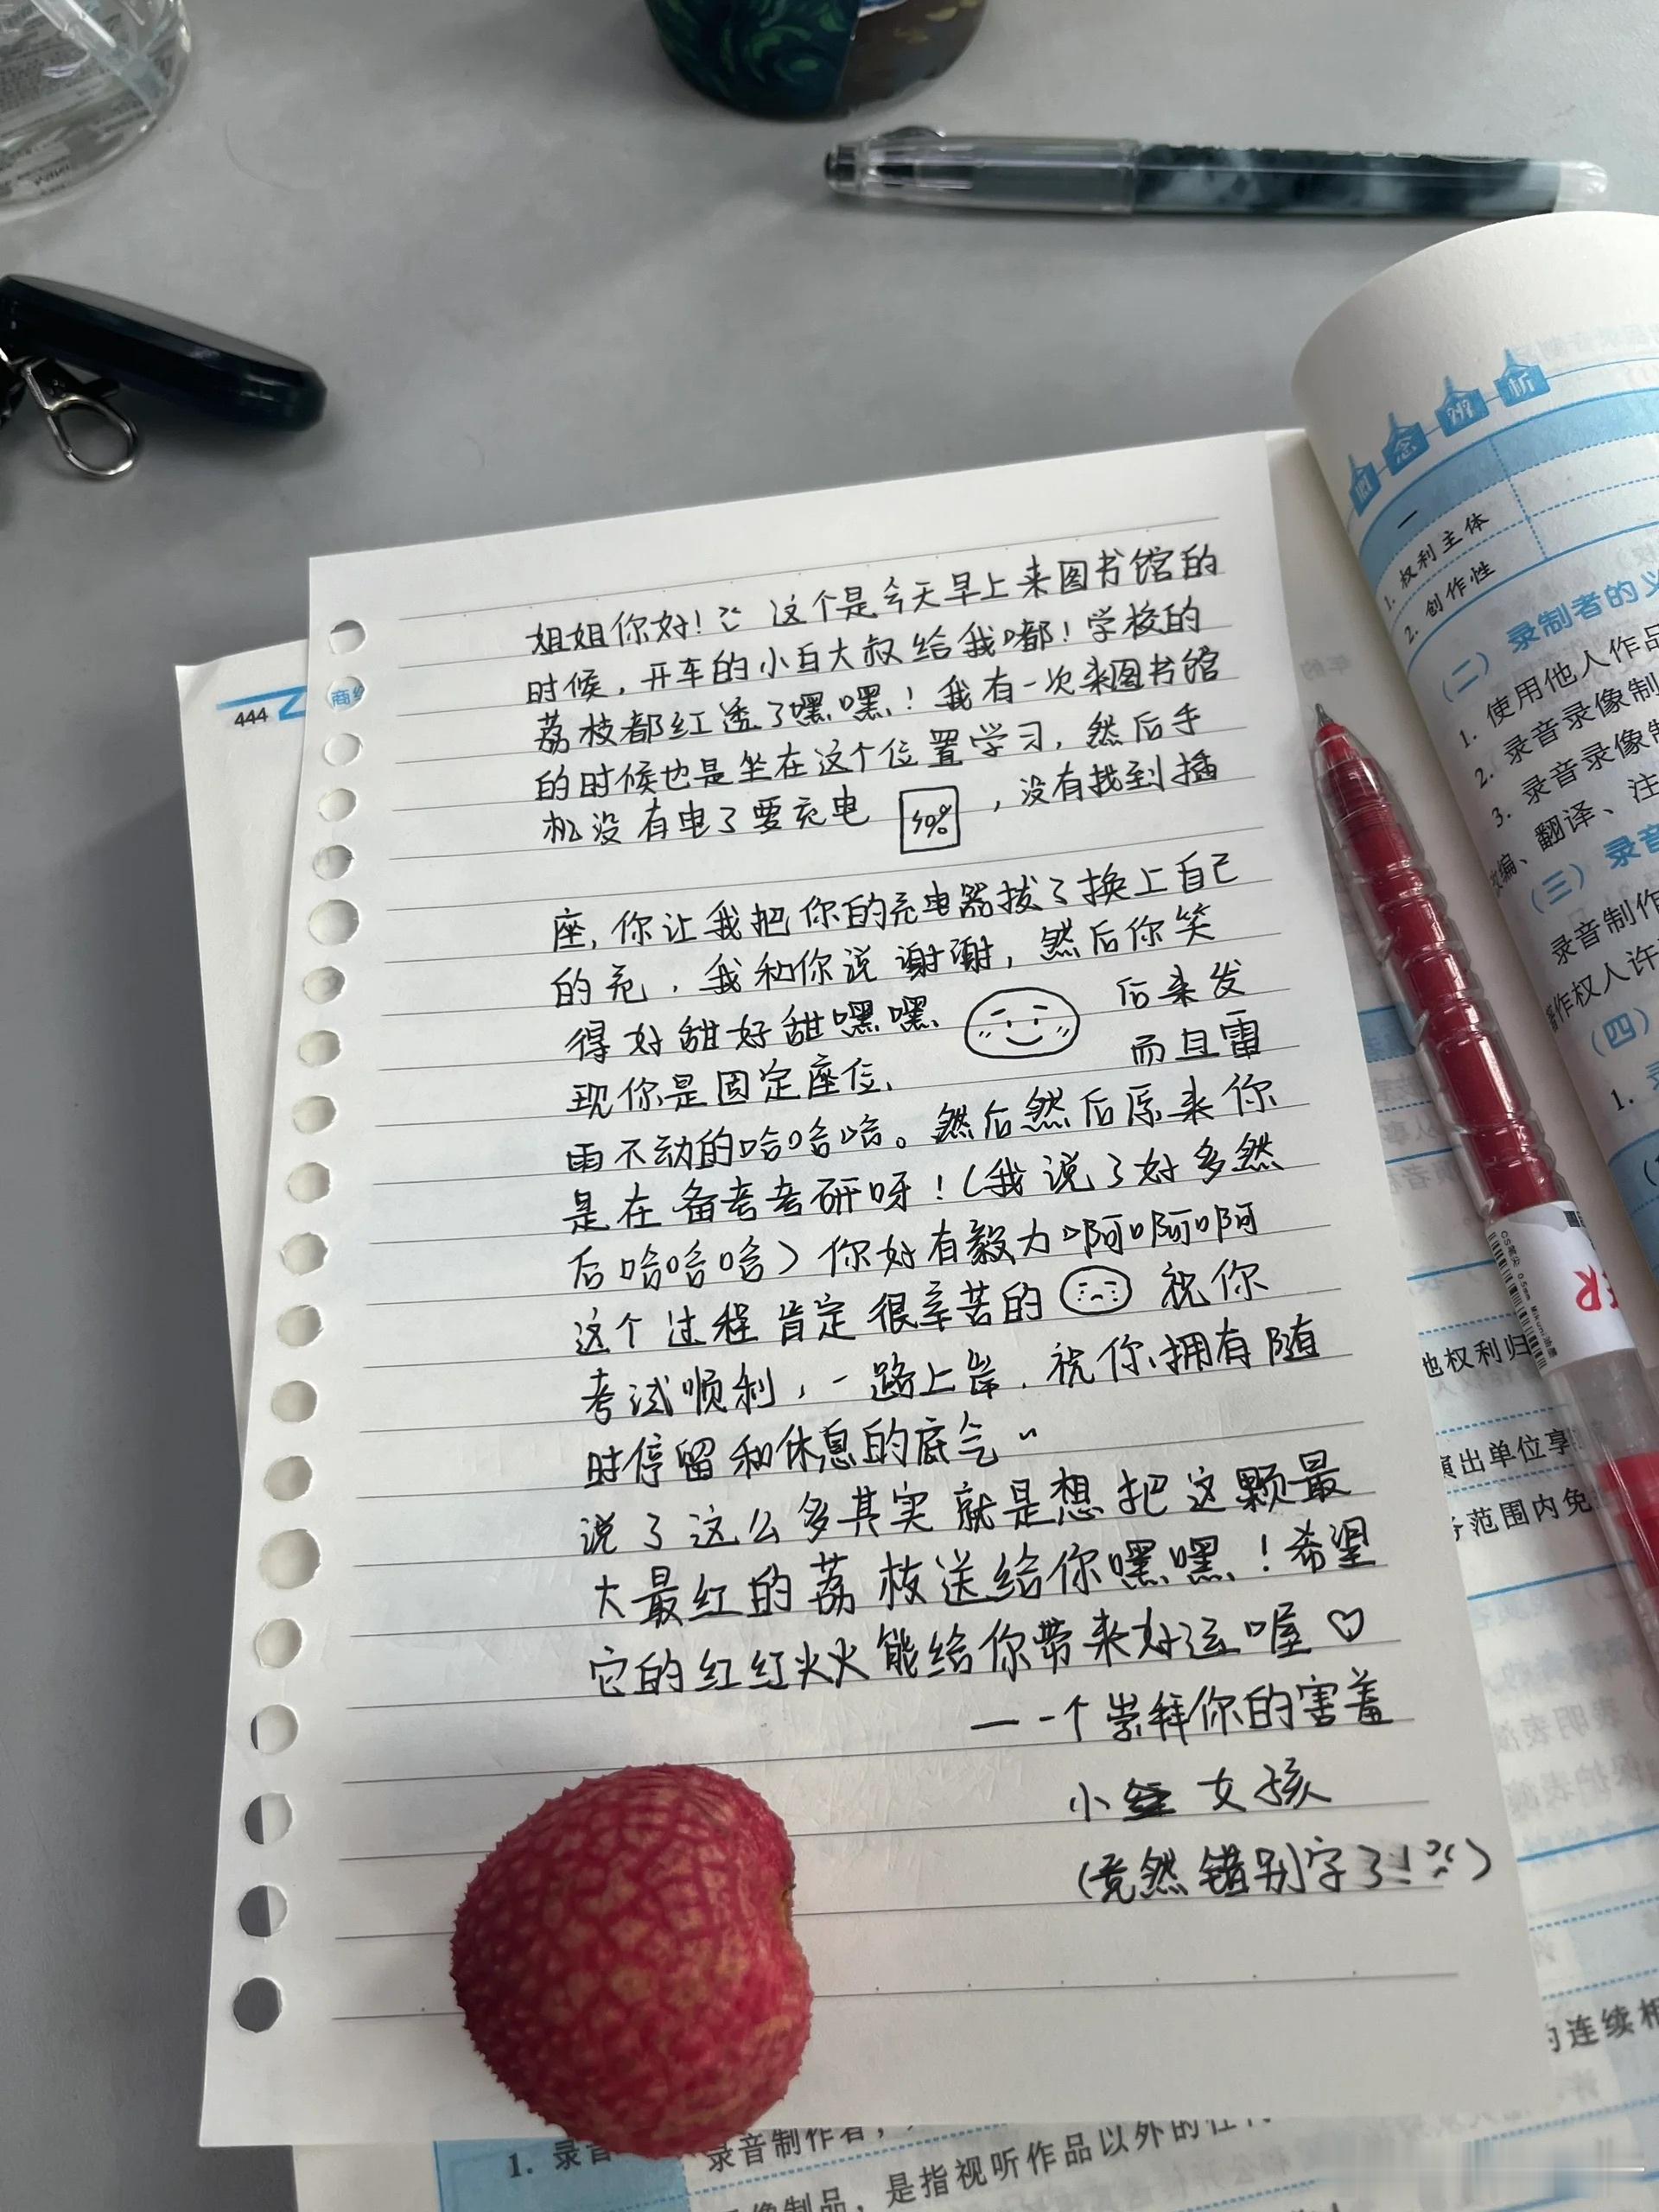 姐姐你好! 这个是今天早上来图书馆的
时候，开车的小白大叔给我嘟! 学校的
荔枝都红透了嘿嘿! 我有一次来图书馆
的时候也是坐在这个位置学习，然后手
机没有电了要充电 10% ，没有找到插
座, 你让我把你的充电器拔了换上自己
的充，我和你说谢谢，然后你笑
得好甜好甜嘿嘿 后来发
现你是固定座位、 而且雷
雨不动的哈哈哈。然后然后原来你
是在备考考研呀!（我说了好多然
后哈哈哈）你好有毅力啊啊啊
这个过程肯定很辛苦的 祝你
考试顺利，一路上岸，祝你拥有随
时停留和休息的底气~
说了这么多其实就是想把这颗最
大最红的荔枝送给你嘿嘿! 希望
它的红红火火能给你带来好运喔♡
——个崇拜你的害羞
小 女孩
（竟然错别字了!）
444
商经
概念辨析
一
1. 权利主体
2. 创作性
（二）录制者的义
1. 使用他人作品
2. 录音录像制
3. 录音录像制
改编、翻译、注
（三）录音
录音制作
著作权人许
（四）
1.
他权利归
演出单位享
务范围内免
的连续相
1. 录音
录音制作者，
像制品，是指视听作品以外的任
0.5mm